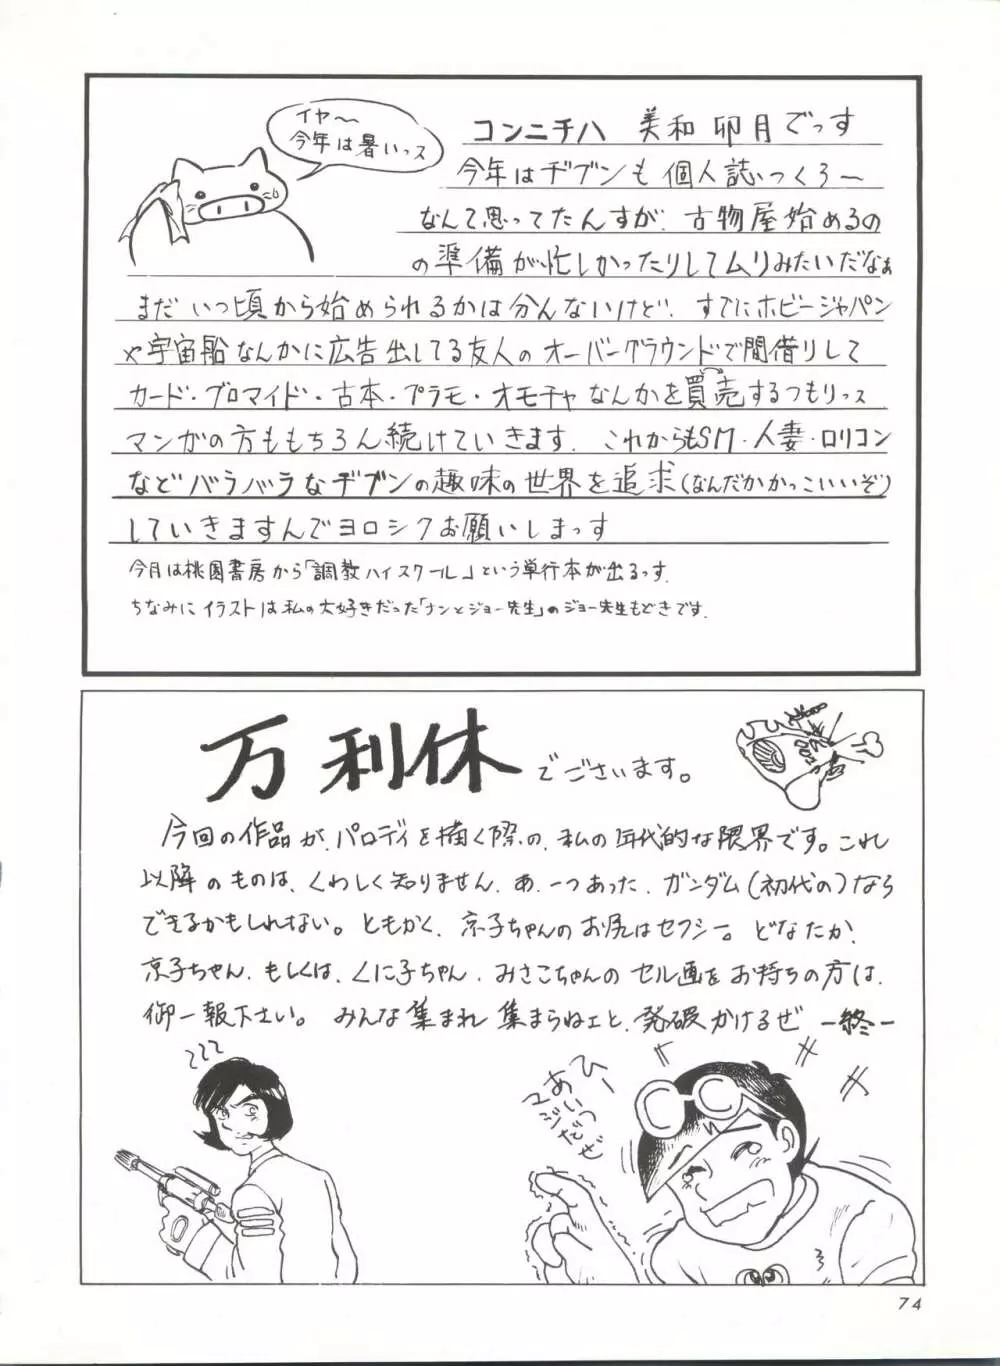 イヤ〜
今年は暑いっス
コンニチハ 美和卯月でっす
今年はヂブンも個人誌っつくろ〜
なんて思ってたんすが、古物屋始めるの
の準備が忙しかったりしてムリみたいだなぁ
まだいつ頃から始められるかは分んないけど、すでにホビージャパン
や宇宙船なんかに広告出してる友人のオーバーグラウンドで間借りして
カード・ブロマイド・古本・プラモ・オモチャなんかを買売するつもりっス
マンガの方ももちろん続けていきます。これからもSM・人妻・ロリコン
などバラバラなヂブンの趣味の世界を追求(なんだかかっこいいぞ)
していきますんでヨロシクお願いしまっす
今月は桃園書房から「調教ハイスクール」という単行本が出るっす。
ちなみにイラストは私の大好きだった「ナンとジョー先生」のジョー先生もどきです。
万利休でございます。
今回の作品が、パロディを描く際の、私の年代的な限界です。これ
以降のものは、くわしく知りません。あ、一つあった、ガンダム(初代の)なら
できるかもしれない。ともかく、京子ちゃんのお尻はセクシー。どなたか、
京子ちゃん、もしくは、くに子ちゃん、みさこちゃんのセル画をお持ちの方は、
御一報下さい。みんな集まれ 集まらねェと、発破かけるぜ ー終ー
ひー
あいつ
マジだぜ
74